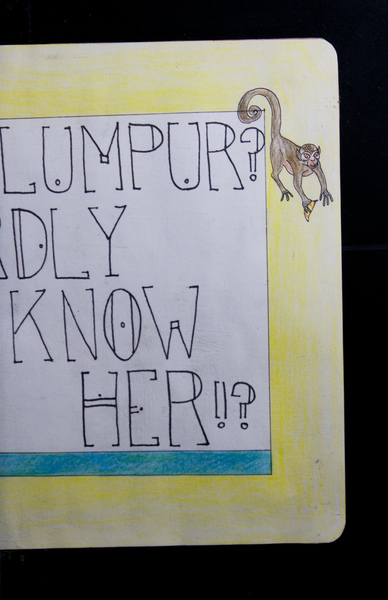 LUMPUR?
RDLY
KNOW
HER!!?